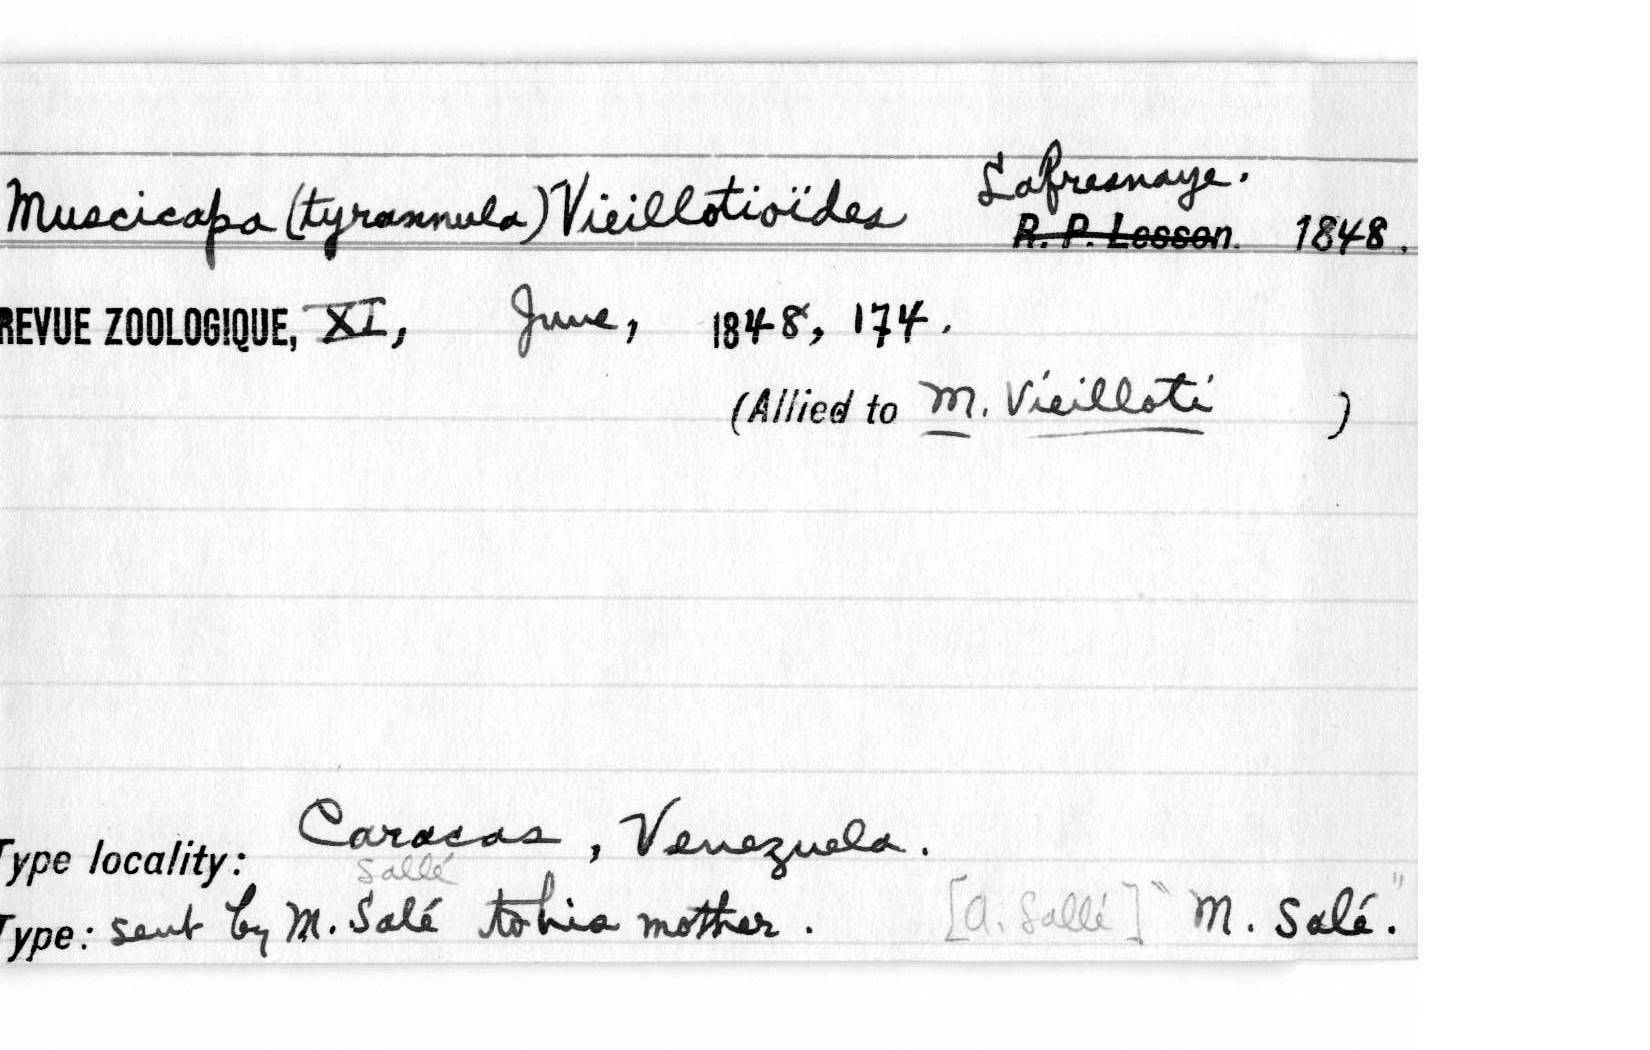 Lafresnaye.
Muscicapa (tyrannula) Vieillotioïdes R. P. Lesson. 1848.
REVUE ZOOLOGIQUE, XI, June, 1848, 174.
(Allied to M. Vieilloti )
Type locality: Caracas, Venezuela.
Sallé
Type: sent by M. Salé to his mother. [A. Sallé] "M. Salé."